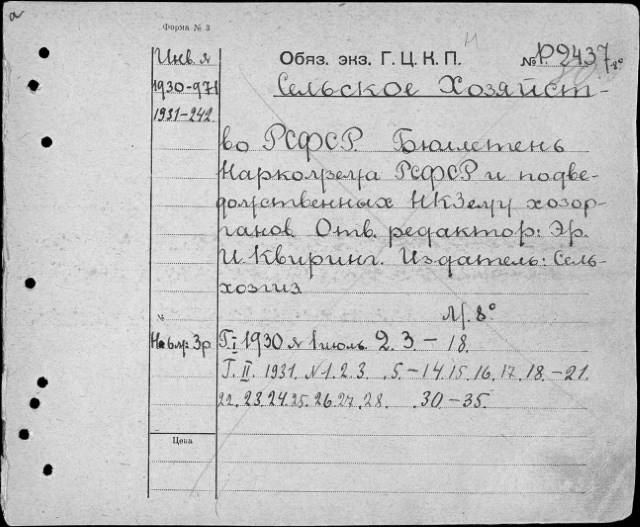 а
Форма № 3
Инв. я
Обяз. экз. Г. Ц. К. П.
№ Р2437
1930-971
Сельское Хозяйст-
1931-242
во РСФСР. Бюллетень
Наркомзема РСФСР и подве-
домственных НКЗему хозор-
ганов. Отв. редактор: Эр.
И. Квиринг. Издатель: Сель-
хозгиз
№
8°
3р
Г. I 1930 я 1 июль. 2. 3 — 18.
Г. II. 1931. N 1. 2. 3. .5.-14. 15. 16. 17. 18. -21.
22. 23. 24. 25. 26. 27. 28. .30 — 35.
Цена